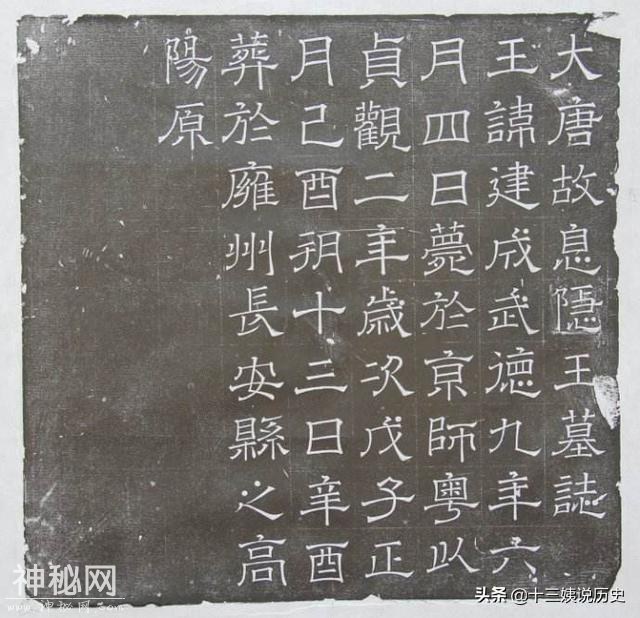 大唐故息隱王墓誌
王諱建成武德九年六
月四日薨於京師粵以
貞觀二年歲次戊子正
月己酉朔十三日辛酉
葬於雍州長安縣之高
陽原
神秘网
www.神秘网.com
头条 @十三姨说历史